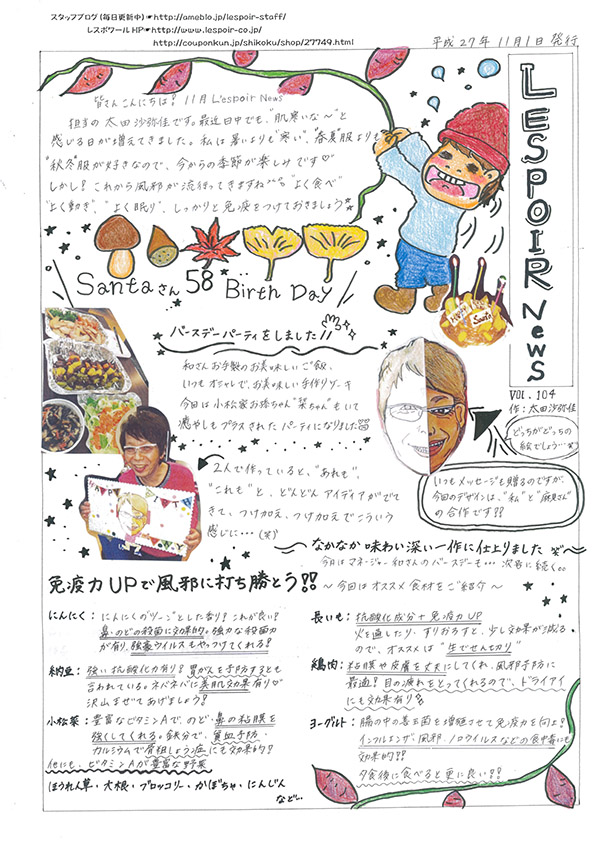 スタッフブログ(毎日更新中)☛http://ameblo.jp/lespoir-staff/
レスポワールHP☛http://www.lespoir-co.jp/
http://couponkun.jp/shikoku/shop/27749.html
平成27年11月1日発行
LESPOIR NEWS
VOL.104
作:太田沙弥佳
皆さんこんにちは! 11月 L'espoir News
担当の太田沙弥佳です。最近日中でも、"肌寒いな〜"と
感じる日が増えてきました。私は暑いよりも"寒い"、"春夏"服よりも
"秋冬"服が好きなので、今からの季節が楽しみです♡
しかし!これから風邪が流行ってきますね
"よく食べ"
"よく動き"、"よく眠り"、しっかりと免疫をつけておきましょう☆
Santaさん 58 Birth Day
バースデーパーティをしました!!
和さんお手製のお美味しいご飯、
いつもオシャレで、お美味しい手作りケーキ
今回は小松家お孫ちゃん"栞ちゃん"もいて
癒やしもプラスされたパーティになりました
どっちがどっちの
絵でしょう…笑)
いつもメッセージも贈るのですが、
今回のデザインは、"私"と"麻見さん"
の合作です??
2人で作っていると、"あれも"、
"これも"と、どんどんアイディアがでて
きて、つけ加え、つけ加えでこういう
感じに…(笑)
〜なかなか味わい深い一作に仕上りました 笑〜
今月はマネージャー和さんのバースデーも…次号に続く。。
免疫力UPで風邪に打ち勝とう!!
〜今回はオススメ食材をご紹介〜
にんにく:にんにくの"ツーン"とした香り?これが良い?
鼻・のどの殺菌に効果的。強力な殺菌力
が有り、強豪ウイルスもやっつけてくれる?
納豆:強い抗酸化力有り?胃がんを予防するとも
言われている。ネバネバに美肌効果有り♡
沢山まぜてあげましょう?
小松菜:豊富なビタミンAで、のど・鼻の粘膜を
強くしてくれる。鉄分で、貧血予防・
カルシウムで骨粗しょう症にも効果的?
他にも、ビタミンAが豊富な野菜
ほうれん草・大根・ブロッコリー・かぼちゃ・にんじん
など…
長いも:抗酸化成分+免疫力UP
火を通したり、すりおろすと、少し効果が減る
ので、オススメは"生でせん切り"
鶏肉:粘膜や皮膚を丈夫にしてくれ、風邪予防に
最適?目の疲れをとってくれるので、ドライアイ
にも効果有り?
ヨーグルト:腸の中の善玉菌を増殖させて免疫力を向上?
インフルエンザ、風邪、ノロウイルスなどの食中毒にも
効果的??
夕食後に食べると更に良い??